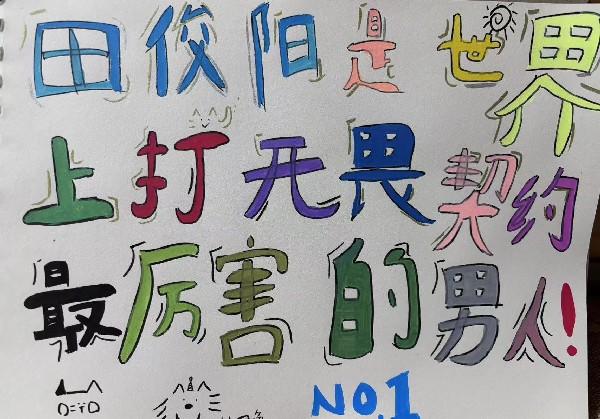 田俊阳是世界
上打无畏契约
最厉害的男人!
NO.1